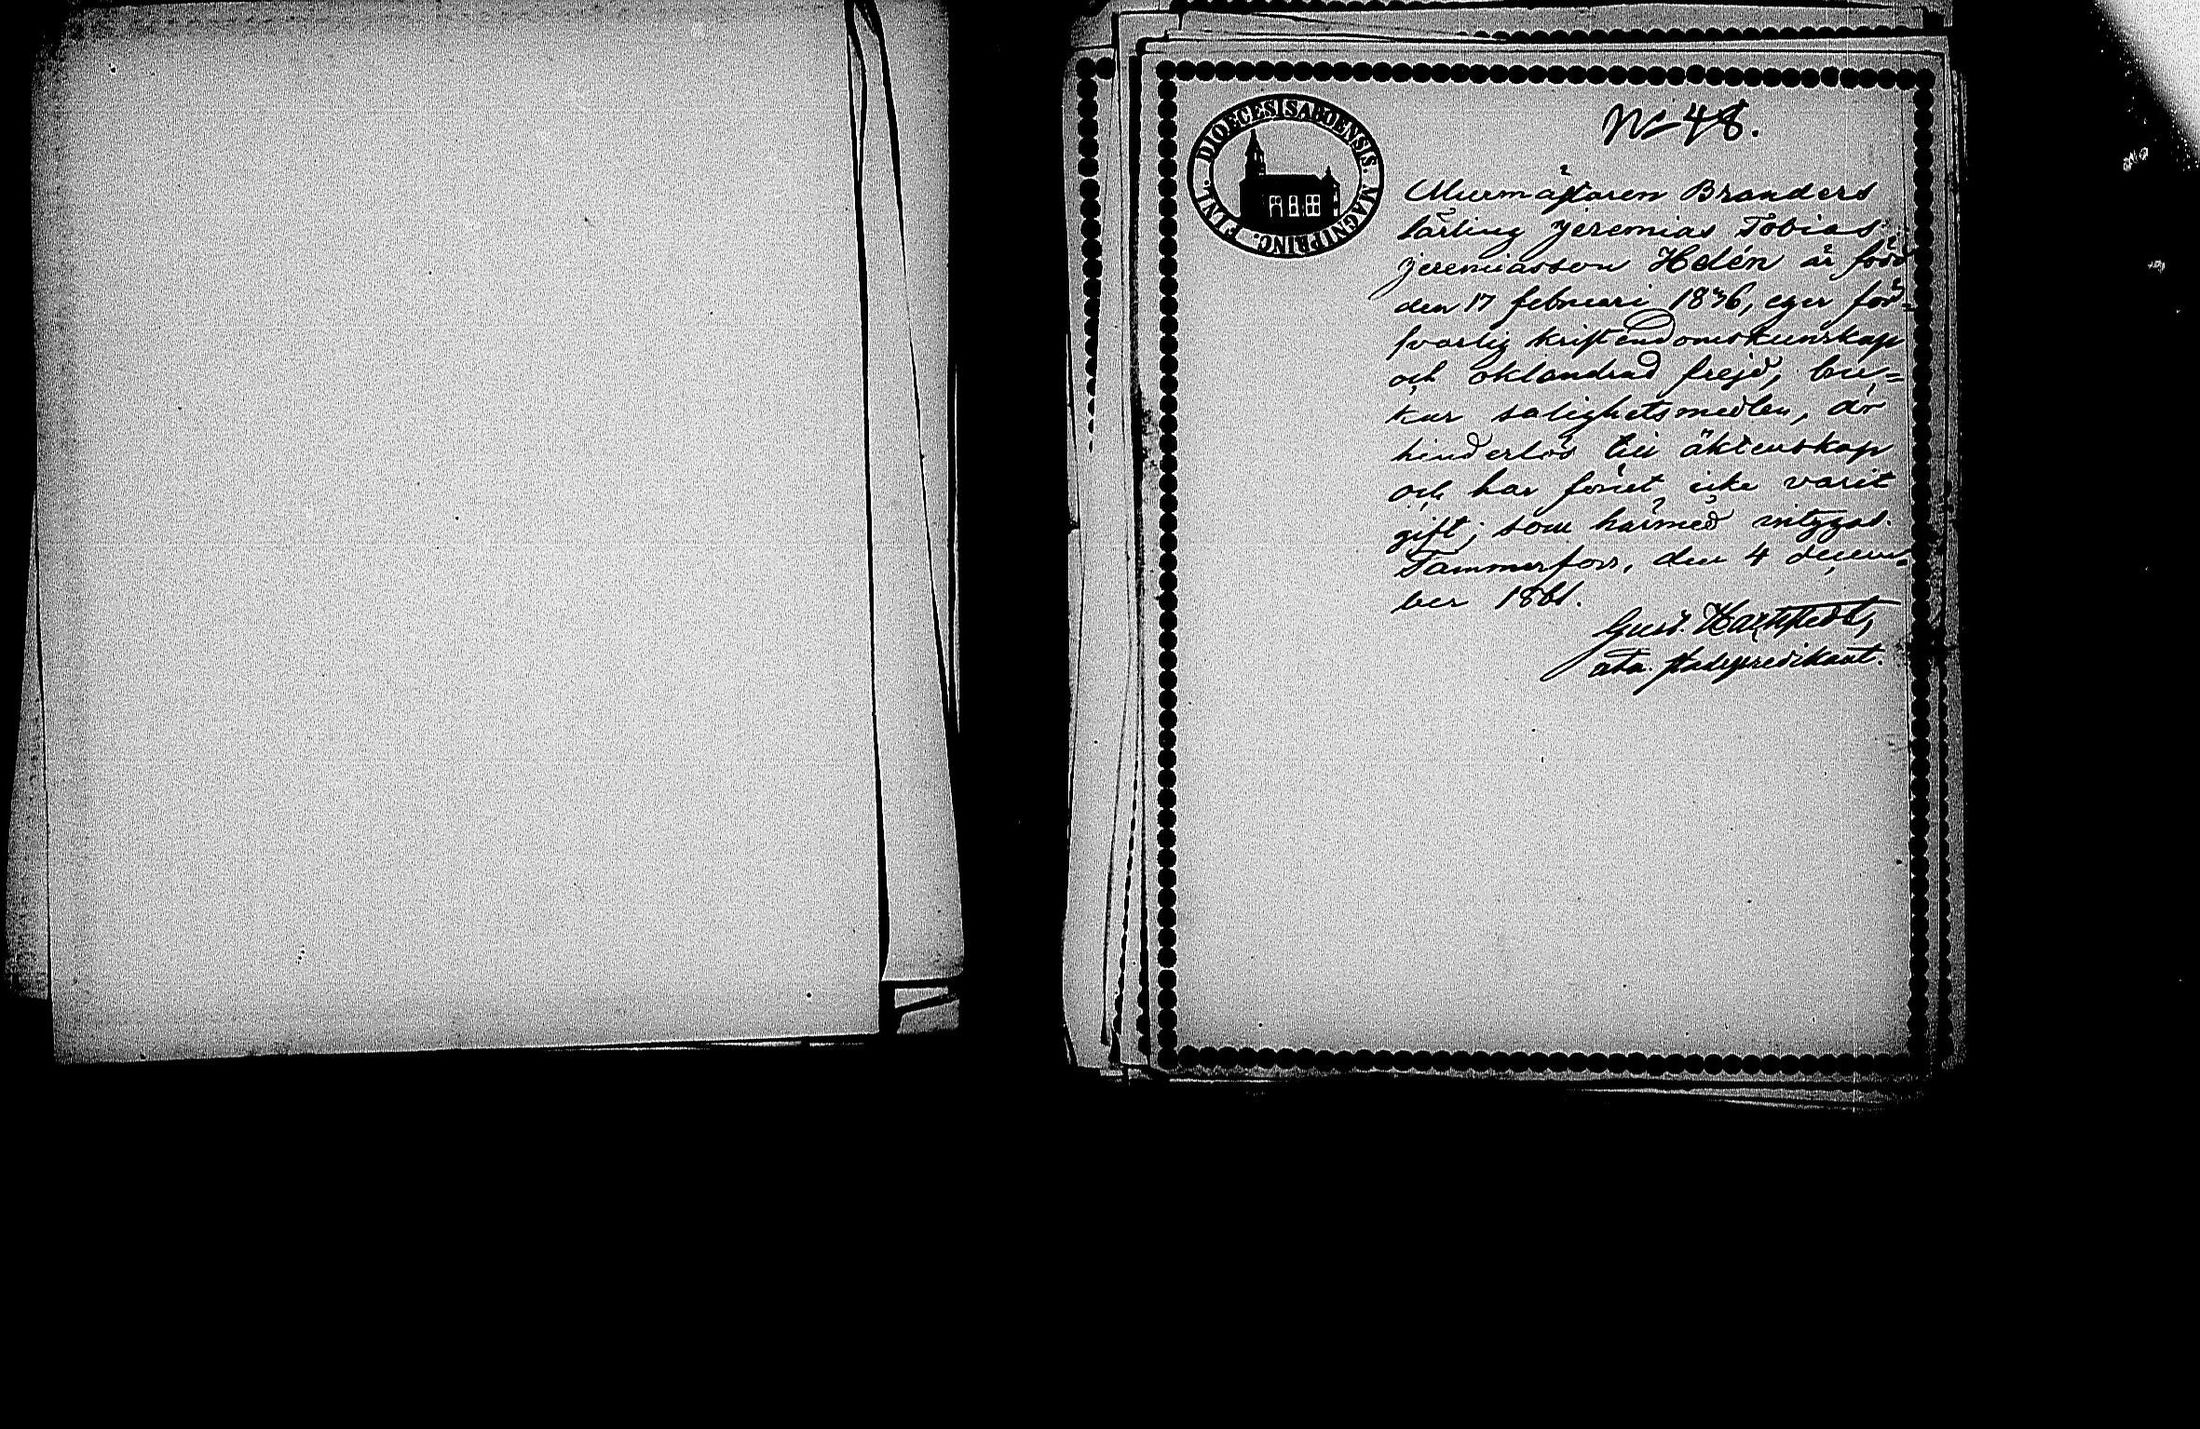 DIOECESIS ABOENSIS. MAGNI PRINC. FINL.
No 48.
Murmästaren Branders
lärling Jeremias Tobias
Jeremiasson Helén är född
den 17 februari 1836, eger för-
svarlig kristendomskunskap
och oklandrad frejd, bru-
kar salighetsmedlen, är
hinderlös till äktenskap
och har förut icke varit
gift; som härmed intygas.
Tammerfors, den 4 decem-
ber 1861.
Gust.
stadspredikant.